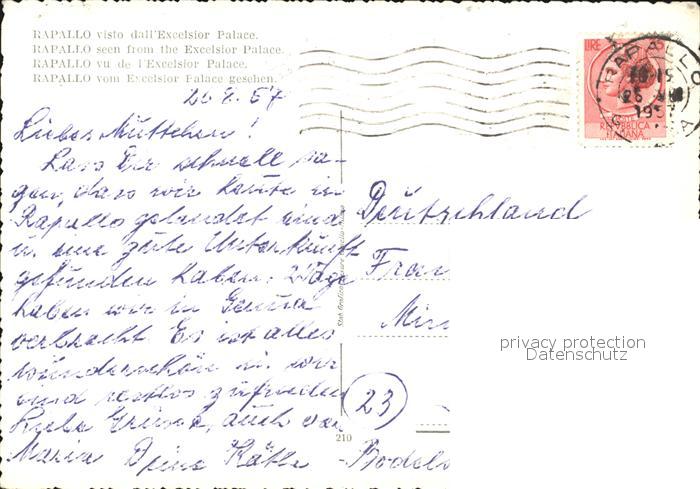 RAPALLO visto dall'Excelsior Palace.
RAPALLO seen from the Excelsior Palace.
RAPALLO vu de l'Excelsior Palace.
RAPALLO vom Excelsior Palace gesehen.
LIRE
RAPALLO
REPUBBLICA
ITALIANA
26.8.57
Liebes Muttchen!
Lass Dir schnell sa-
gen, dass wir heute in
Rapallo gelandet sind
u. eine gute Unterkunft
gefunden haben. 2 Tage
haben wir in Genua
verbracht. Es ist alles
wunderschön u. wir
sind restlos zufrieden
Liebe Grüsse, auch von
Maria Deine Käthe
210
Deutschland
Fran
23
Bodels
privacy protection
Datenschutz